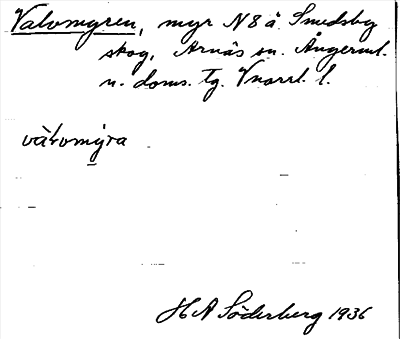 Valvomyren, myr N 8 å. Smedsby
skog, Arnäs sn. Ångerml.
n. doms. Tg. Vnorrl. l.
vàlvomýra
H A Söderberg 1936